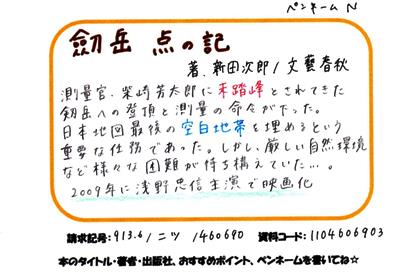 ペンネーム N
劔岳 点の記
著.新田次郎/文藝春秋
測量官、柴崎芳太郎に未踏峰とされてきた
劔岳への登頂と測量の命令が下った。
日本地図最後の空白地帯を埋めるという
重要な任務であった。しかし、厳しい自然環境
など様々な困難が待ち構えていた…。
2009年に浅野忠信主演で映画化
請求記号:913.6/ニツ/460680 資料コード:1104606903
本のタイトル・著者・出版社、おすすめポイント、ペンネームを書いてね☆